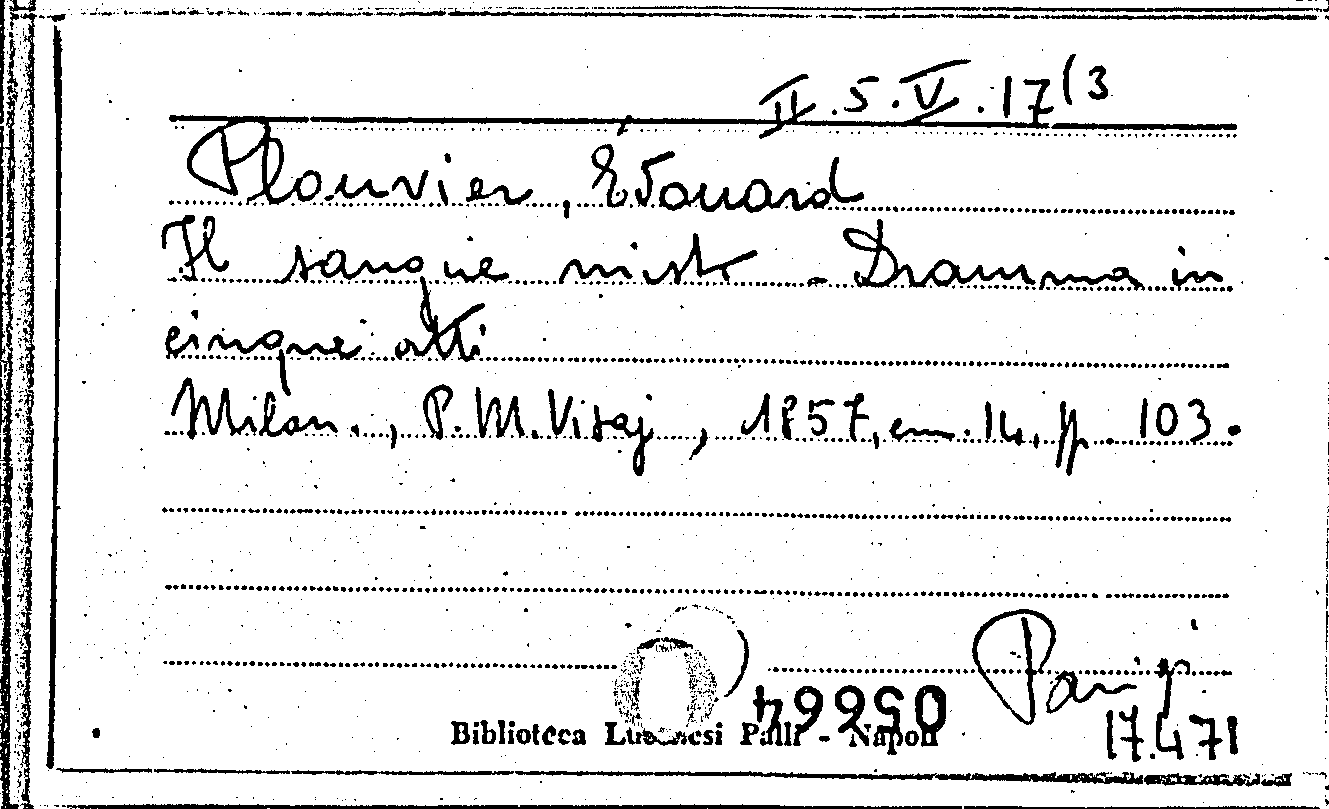 II.5.V.17(3
Plouvier, Édouard
Il sangue misto - Dramma in
cinque atti
Milan., P. M. Visaj, 1857, cm. 14, pp. 103.
05664
Biblioteca Lucchesi Palli - Napoli
Parigi
17.4.71